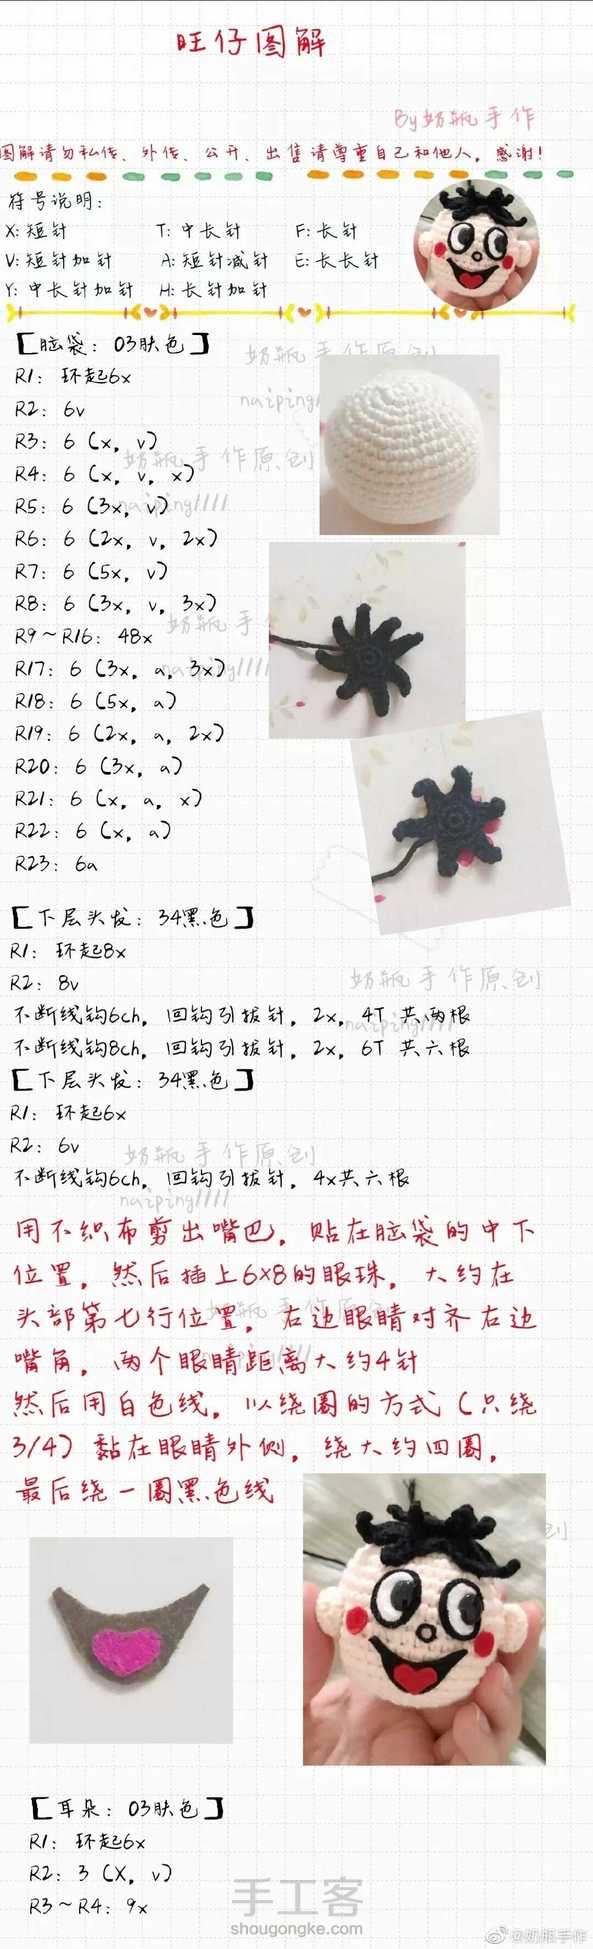 旺仔图解
By奶瓶手作
图解请勿私传、外传、公开、出售请尊重自己和他人，感谢！
符号说明：
X：短针 T：中长针 F：长针
V：短针加针 A：短针减针 E：长长针
Y：中长针加针 H：长针加针
【脑袋：03肤色】
奶瓶手作原创
R1：环起6x
naiping1111
R2：6v
R3：6（x，v）
奶瓶手作原创
R4：6（x，v，x）
R5：6（3x，v）
naiping1111
R6：6（2x，v，2x）
R7：6（5x，v）
R8：6（3x，v，3x）
奶瓶手
R9～R16：48x
R17：6（3x，a，3x）
naiping1111
R18：6（5x，a）
R19：6（2x，a，2x）
R20：6（3x，a）
R21：6（x，a，x）
R22：6（x，a）
R23：6a
【下层头发：34黑色】
R1：环起8x
R2：8v
奶瓶手作原创
不断线钩6ch，回钩引拔针，2x，4T 共两根
naiping1111
不断线钩8ch，回钩引拔针，2x，6T 共六根
【下层头发：34黑色】
R1：环起6x
R2：6v
奶瓶手作原创
不断线钩6ch，回钩引拔针，4x共六根
naiping1111
用不织布剪出嘴巴，贴在脑袋的中下
位置，然后插上6×8的眼珠，大约在
奶瓶手作原创
头部第七行位置，右边眼睛对齐右边
嘴角，两个眼睛距离大约4针
然后用白色线，以绕圈的方式（只绕
3/4）黏在眼睛外侧，绕大约四圈，
最后绕一圈黑色线
创
【耳朵：03肤色】
R1：环起6x
R2：3（X，v）
R3～R4：9x
手工客
shougongke.com
@奶瓶手作